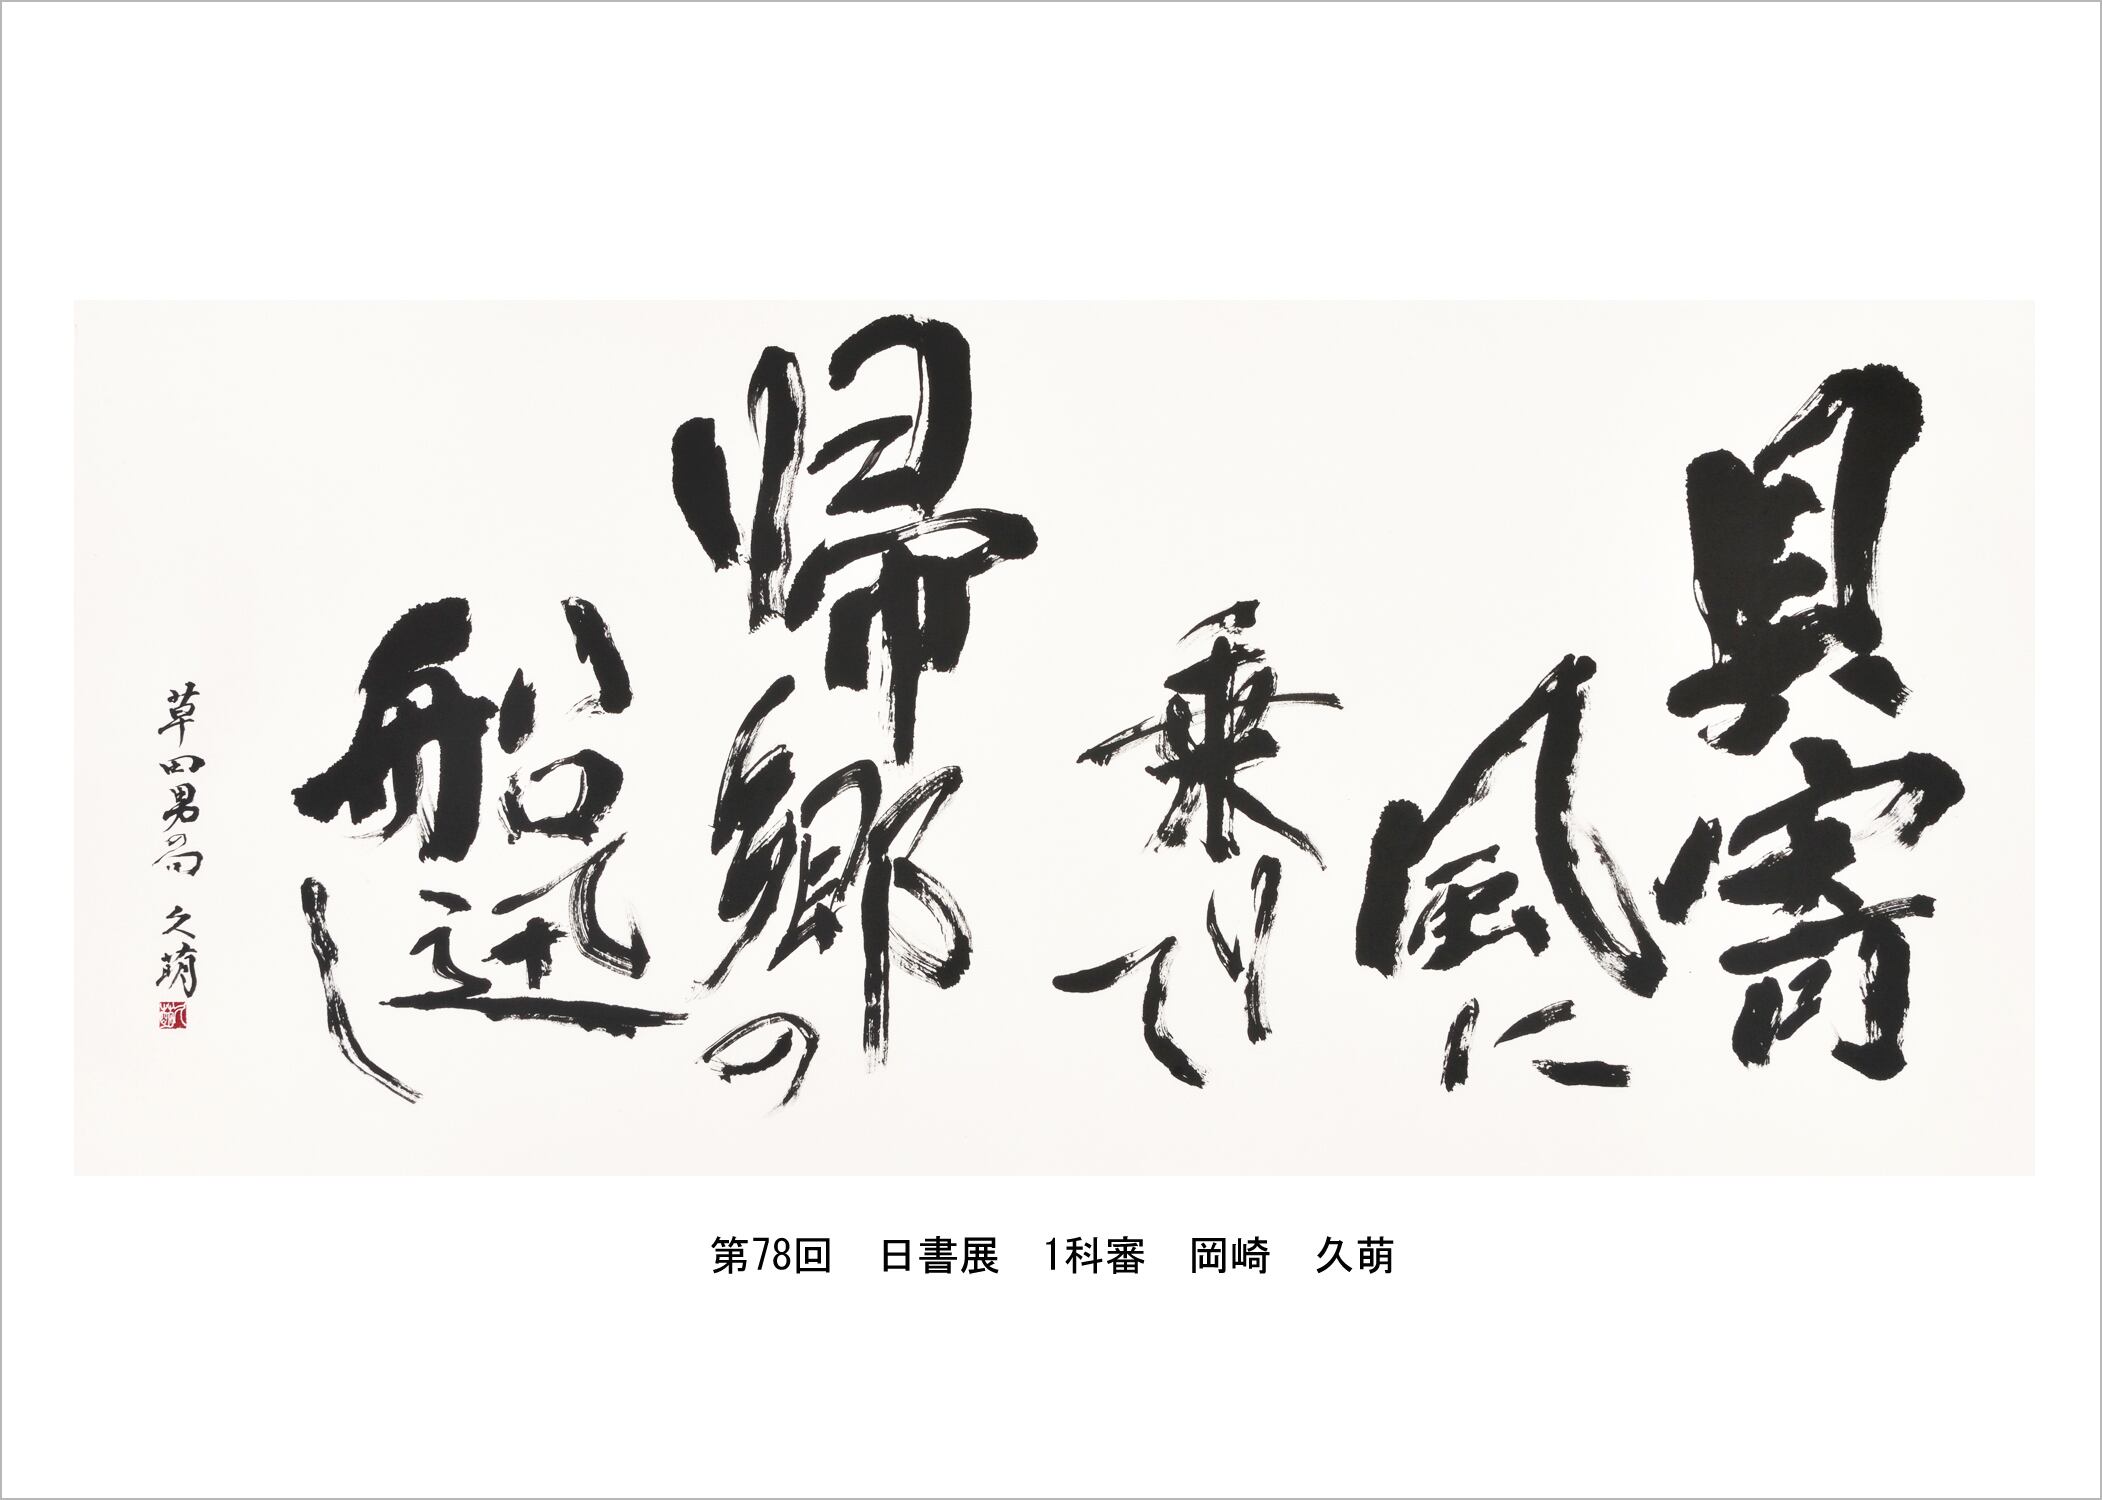 貝寄
風に
乗りて
帰郷の
船迅
し
草田男の句 久萌
第78回 日書展 1科審 岡崎 久萌